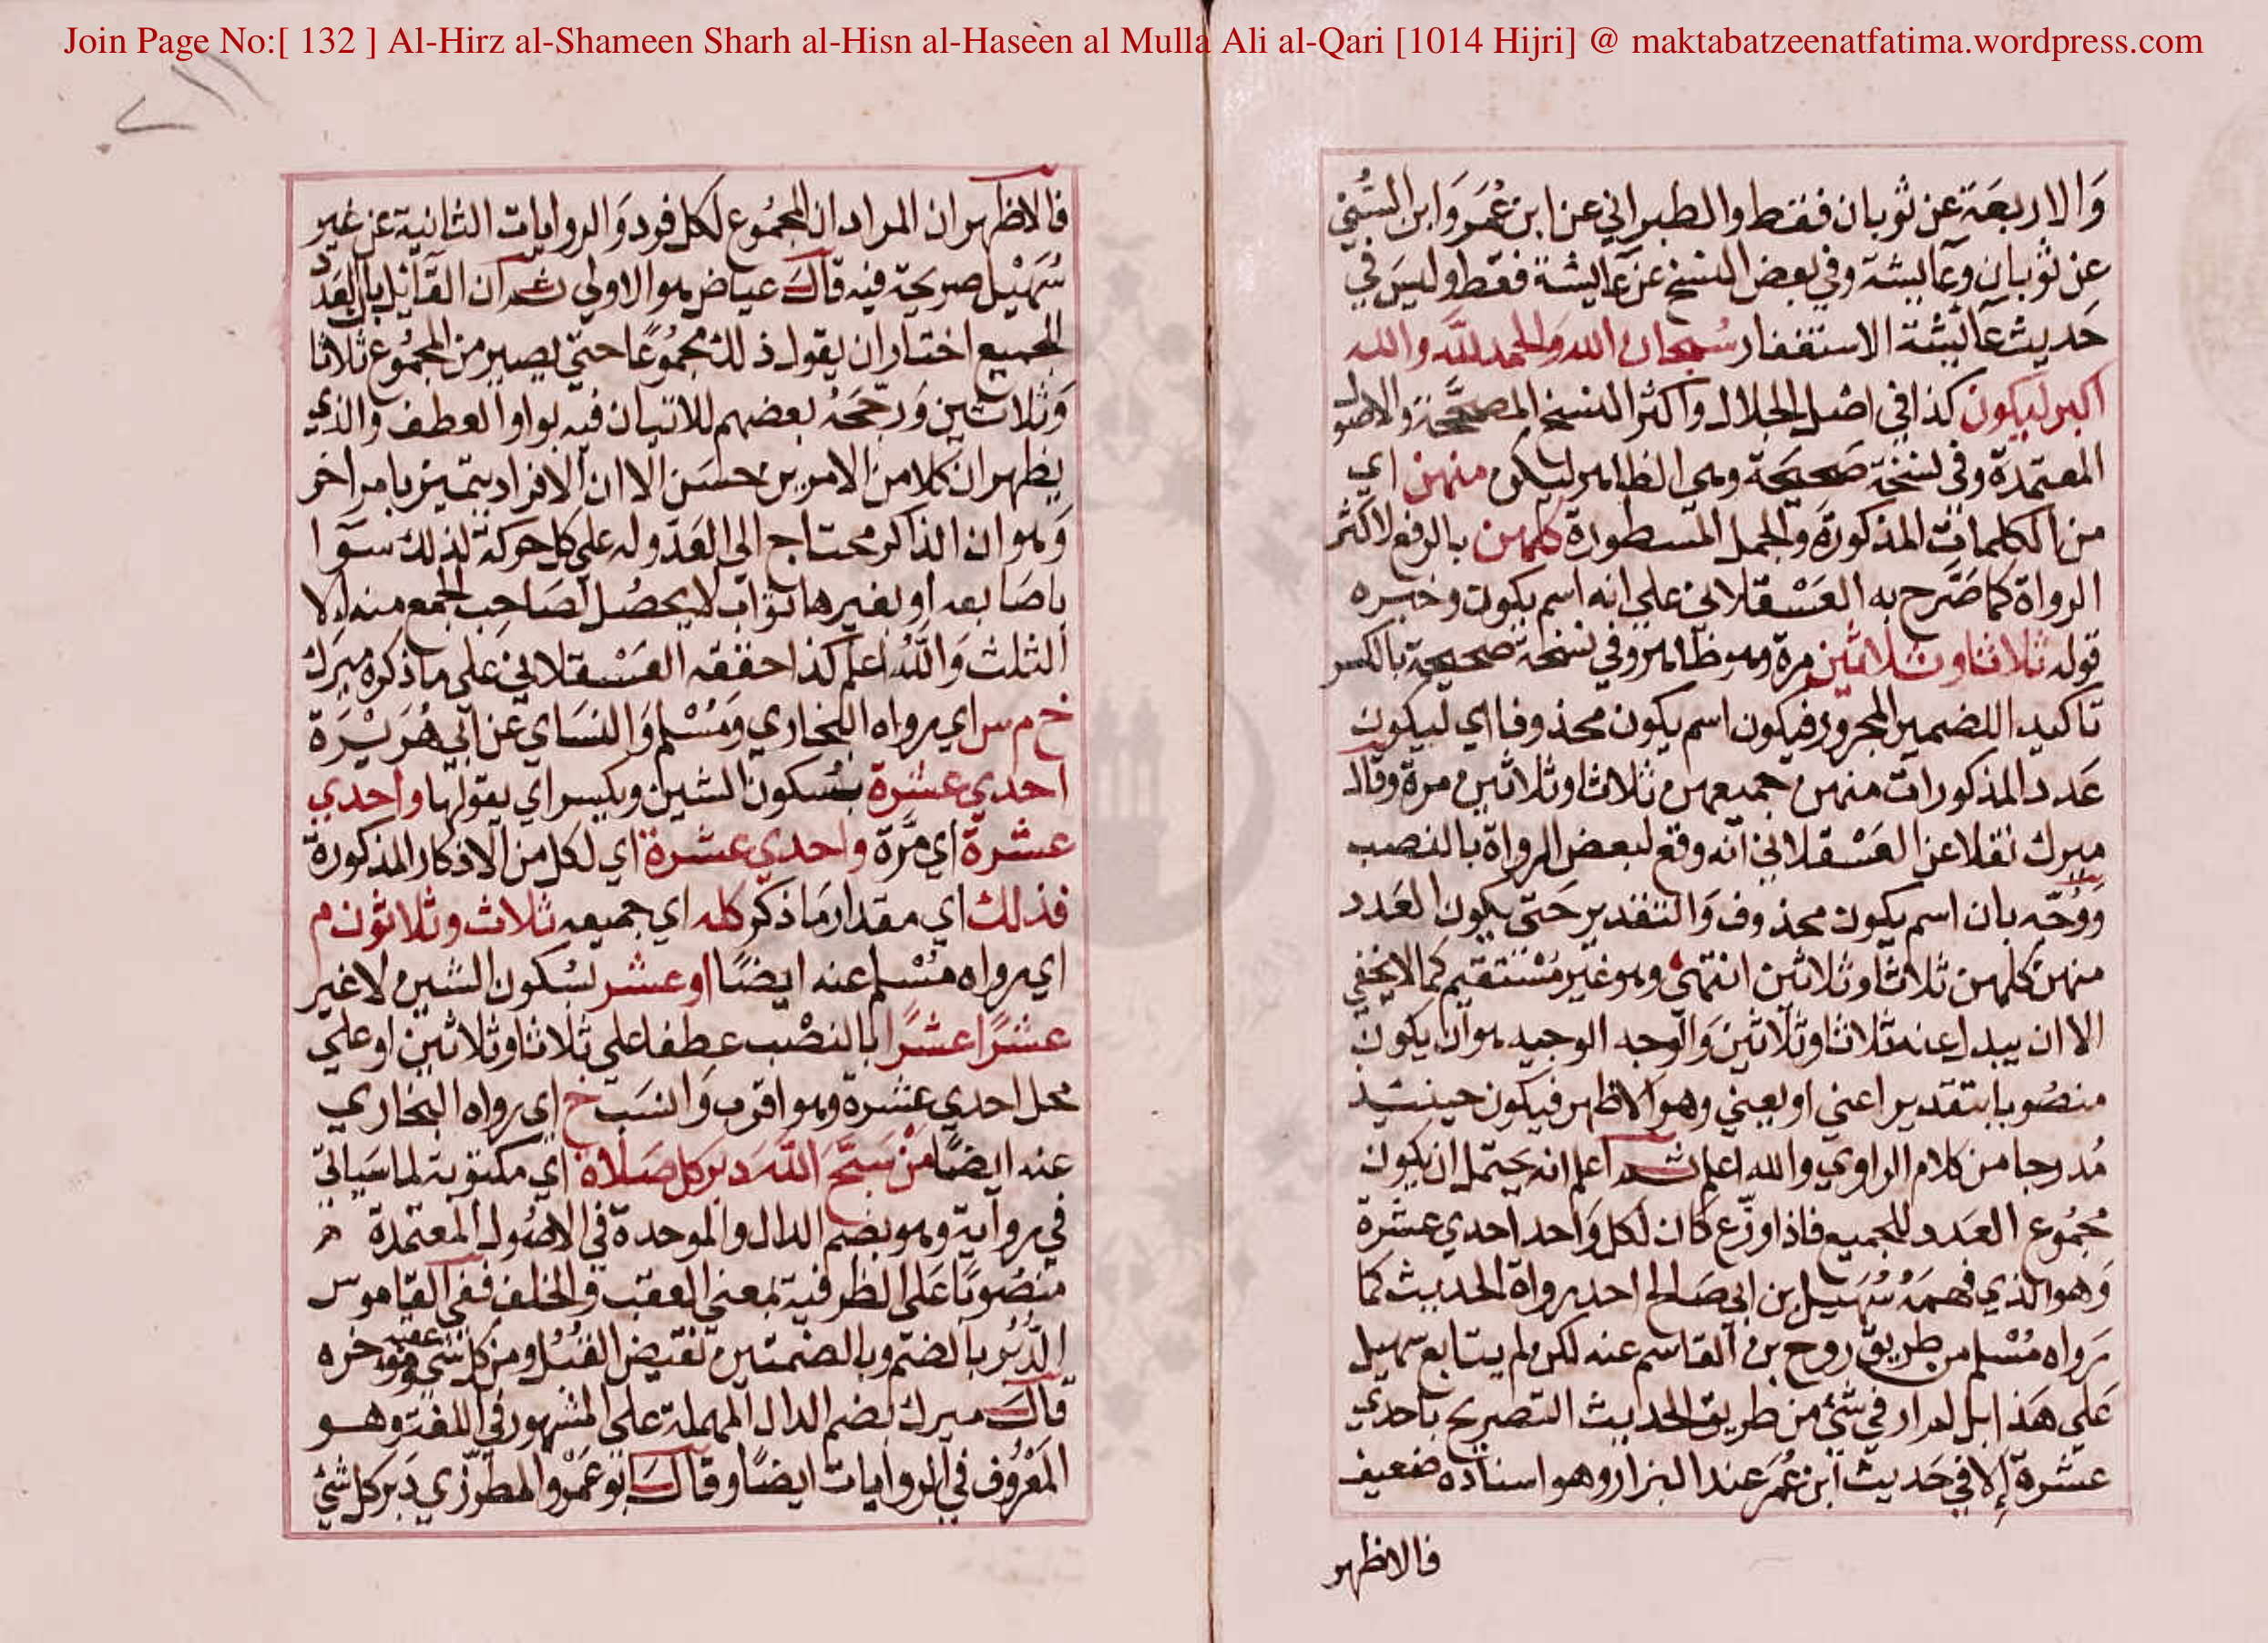 Join Page No:[ 132 ] Al-Hirz al-Shameen Sharh al-Hisn al-Haseen al Mulla Ali al-Qari [1014 Hijri] @ maktabatzeenatfatima.wordpress.com
والاربعة عن ثوبان فقط والطبراني عن ابن عمر وابن السني
عن ثوبان وعايشة وفي بعض النسخ عن عايشة فقط وليس في
حديث عايشة الاستغفار سبحان الله والحمد لله والله
اكبر ليكون كذا في اصل الجلال واكثر النسخ المصححة والاصول
المعتمدة وفي نسخة صحيحة وهي الظاهر ليكن منهن اي
من الكلمات المذكورة والجمل المسطورة كلهن بالرفع لاكثر
الرواة كما صرح به العسقلاني على انه اسم يكون وخبره
قوله ثلاثا وثلاثين مرة وهو ظاهر وفي نسخة صحيحة بالكسر
تاكيد اللضمير المجرور فيكون اسم يكون محذوفا اي ليكون
عدد المذكورات منهن جميعهن ثلاثا وثلاثين مرة وقال
ميرك نقلا عن العسقلاني انه وقع لبعض الرواة بالنصب
ووجه بان اسم يكون محذوف والتقدير حتى يكون العدد
منهن كلهن ثلاثا وثلاثين انتهى وهو غير مستقيم كما لا يخفي
الا ان يبدل عنه ثلاثا وثلاثين والوجه الوجيه هو ان يكون
منصوبا بتقدير اعني او يعني وهو الاظهر فيكون حينئذ
مدرجا من كلام الراوي والله اعلم ثم اعلم انه يحتمل ان يكون
مجموع العدد للجميع فاذا وزع كان لكل واحد احدي عشرة
وهو الذي فهمه سهيل بن ابي صالح احد رواة الحديث كما
رواه مسلم من طريق روح بن القاسم عنه لكن لم يتابع سهيل
على هذا بل لم ار في شئ من طريق الحديث التصريح باحدي
عشرة الا في حديث ابن عمر عند البزار وهو اسناده ضعيف
فالاظهر
فالاظهر ان المراد ان المجموع لكل فرد والروايات الثانية عن غير
سهيل صريحة فيه قال عياض هو الاولي ثم ان القايل بان العدد
للجميع اختار ان يقول ذلك مجموعا حتى يصير من المجموع ثلاثا
وثلاثين ورجحه بعضهم للاتيان فيه بواو العطف والذي
يظهر ان كلا من الامرين حسن الا ان الافراد يتميز بامر اخر
وهو ان الذاكر محتاج الى العد وله على كل حركة لذلك سوا
باصابعه او بغيرها ثواب لا يحصل لصاحب الجمع منه الا
الثلث والله اعلم كذا حققه العسقلاني على ما ذكره ميرك
خ م س اي رواه البخاري ومسلم والنساي عن ابي هريرة
احدي عشرة بسكون الشين ويكسر اي يقولها واحدي
عشرة اي مرة واحدي عشرة اي لكل من الاذكار المذكورة
فذلك اي مقدار ما ذكر كله اي جميعه ثلاث وثلاثون م
اي رواه مسلم عنه ايضا او عشر بسكون الشين لا غير
عشرا عشرا بالنصب عطفا على ثلاثا وثلاثين او على
محل احدي عشرة وهو اقرب وانسب خ اي رواه البخاري
عنه ايضا من سبح الله دبر كل صلاة اي مكتوبة لما سياتي
في رواية وهو بضم الدال والموحدة في الاصول المعتمدة
منصوبا على الظرفية بمعني العقب والخلف ففي القاموس
الدبر بالضم وبالضمتين نقيض القبل ومن كل شي عقبه وموخره
قال ميرك بضم الدال المهملة على المشهور في اللغة وهو
المعروف في الروايات ايضا وقال ابو عمرو المطرزي دبر كل شئ